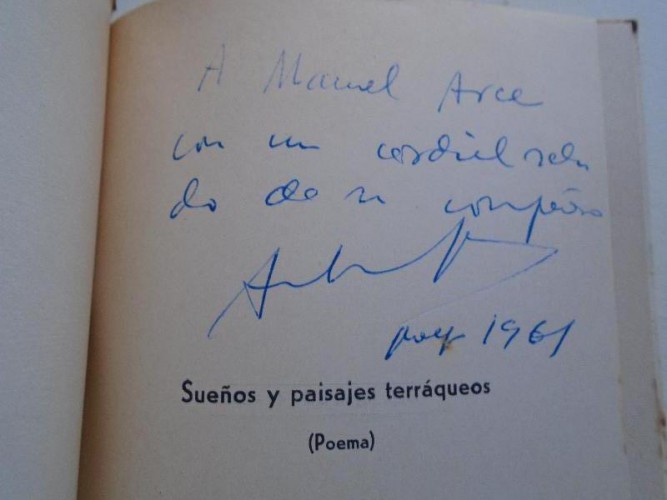 A Manuel Arce
con un cordial salu
do de su compañero
1961
Sueños y paisajes terráqueos
(Poema)